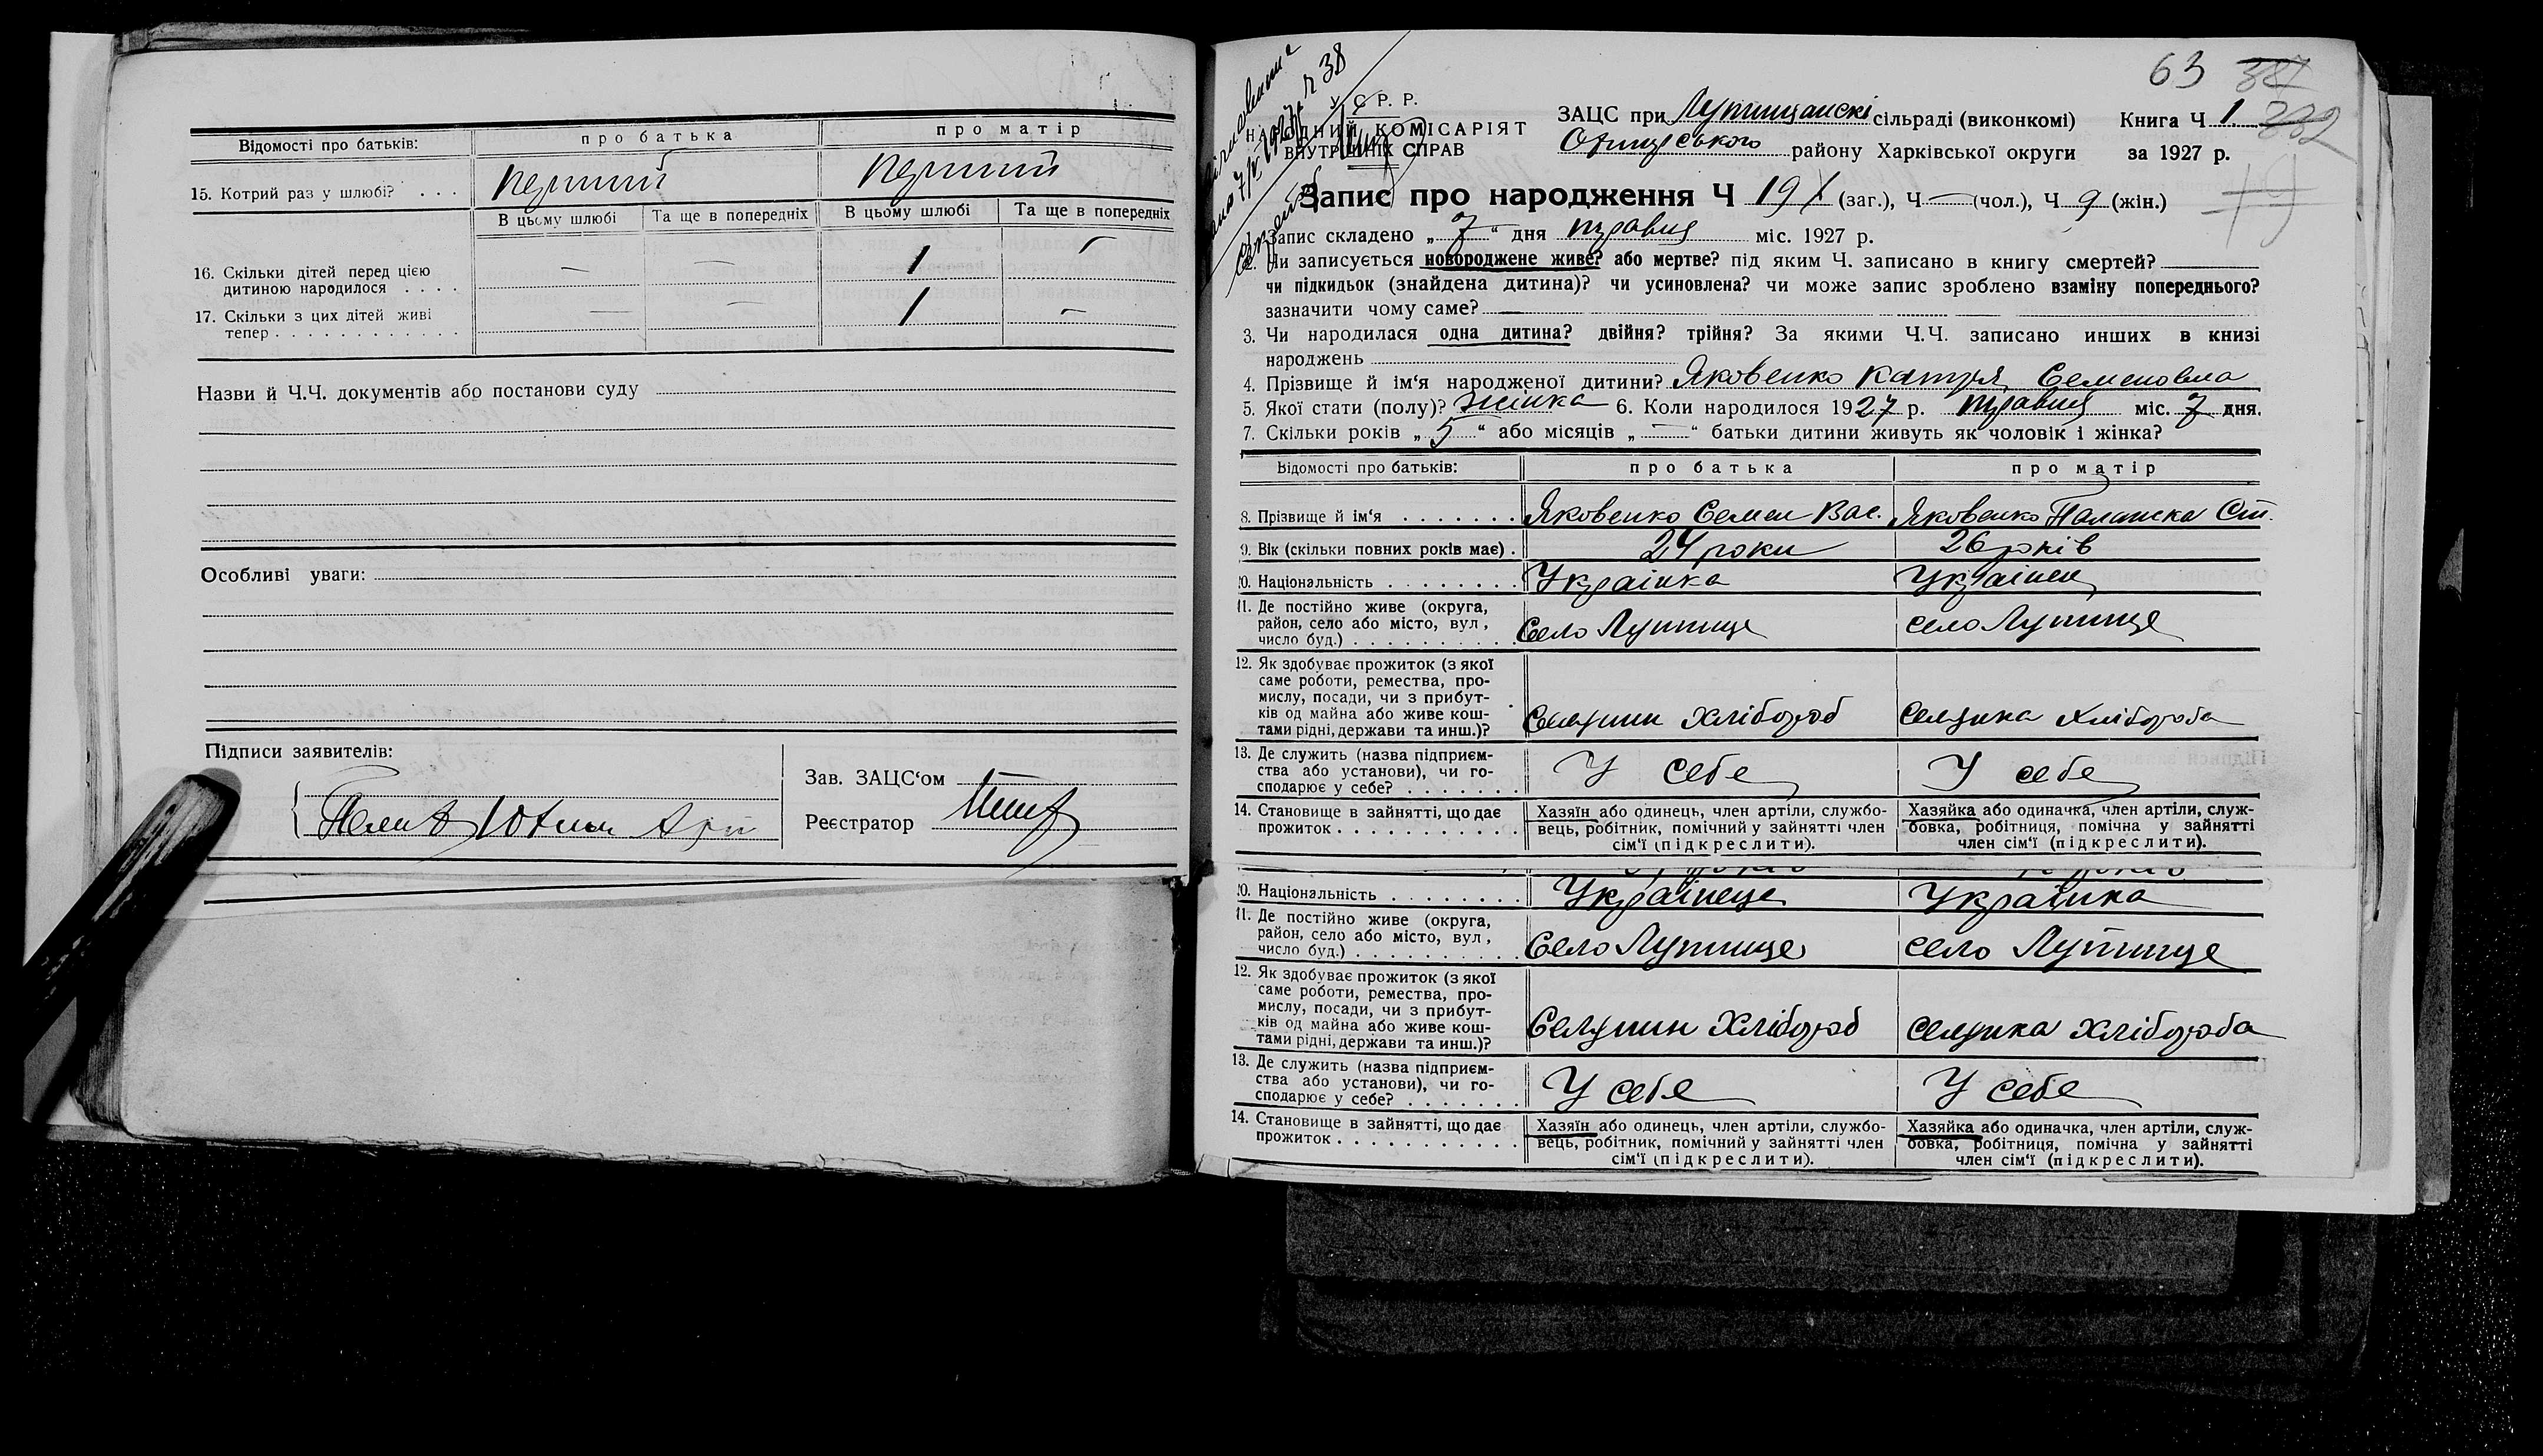 Відомості про батьків:
про батька
про матір
15. Котрий раз у шлюбі? . . .
перший
перший
В цьому шлюбі
Та ще в попередніх
В цьому шлюбі
Та ще в попередніх
16. Скільки дітей перед цією
дитиною народилося . . . .
—
—
1
—
17. Скільки з цих дітей живі
тепер . . . . . . . . . . . .
—
—
1
—
Назви й Ч.Ч. документів або постанови суду
Особливі уваги:
Підписи заявителів:
Зав. ЗАЦС‘ом
Реєстратор
63
У. С. Р. Р.
НАРОДНИЙ КОМІСАРІЯТ
ВНУТРІШНІХ СПРАВ
ЗАЦС при Лутищанскі сільраді (виконкомі)
району Харківської округи
Книга Ч 1
за 1927 р.
Запис про народження Ч 19 (заг.), Ч — (чол.), Ч 9 (жін.)
Запис складено „ 7 “ дня травня міс. 1927 р.
2. Чи записується новороджене живе? або мертве? під яким Ч. записано в книгу смертей?
чи підкидьок (знайдена дитина)? чи усиновлена? чи може запис зроблено взаміну попереднього?
зазначити чому саме? —
3. Чи народилася одна дитина? двійня? трійня? За якими Ч.Ч. записано инших в книзі
народжень
4. Прізвище й ім‘я народженої дитини? Яковенко Катря Семеновна
5. Якої стати (полу)? жінка 6. Коли народилося 1927 р. травня міс. 7 дня.
7. Скільки років „ 5 “ або місяців „ — “ батьки дитини живуть як чоловік і жінка?
Відомості про батьків:
про батька
про матір
8. Прізвище й ім‘я . . . . . . .
Яковенко Семен Вас.
Яковенко Палажка Ст.
9. Вік (скільки повних років має) .
24 роки
26 років
10. Національність . . . . . . . .
Українка
Українец
11. Де постійно живе (округа,
район, село або місто, вул.,
число буд.) . . . . . . . . . .
Село Лутище
село Лутище
12. Як здобуває прожиток (з якої
саме роботи, ремества, про-
мислу, посади, чи з прибут-
ків од майна або живе кош-
тами рідні, держави та инш.)?
Селянин Хлібороб
селянка хлібороба
13. Де служить (назва підприєм-
ства або установи), чи го-
сподарює у себе? . . . . . . .
У себе
У себе
14. Становище в зайнятті, що дає
прожиток . . . . . . . . . . .
Хазяїн або одинець, член артіли, службо-
вець, робітник, помічний у зайнятті член
сім‘ї (підкреслити).
Хазяйка або одиначка, член артіли, служ-
бовка, робітниця, помічна у зайнятті
член сім‘ї (підкреслити).
10. Національність . . . . . . . .
Українець
Українка
11. Де постійно живе (округа,
район, село або місто, вул.,
число буд.) . . . . . . . . . .
Село Лутище
село Лутище
12. Як здобуває прожиток (з якої
саме роботи, ремества, про-
мислу, посади, чи з прибут-
ків од майна або живе кош-
тами рідні, держави та инш.)?
Селянин Хлібороб
селянка хлібороба
13. Де служить (назва підприєм-
ства або установи), чи го-
сподарює у себе? . . . . . . .
У себе
У себе
14. Становище в зайнятті, що дає
прожиток . . . . . . . . . . .
Хазяїн або одинець, член артіли, службо-
вець, робітник, помічний у зайнятті член
сім‘ї (підкреслити).
Хазяйка або одиначка, член артіли, служ-
бовка, робітниця, помічна у зайнятті
член сім‘ї (підкреслити).